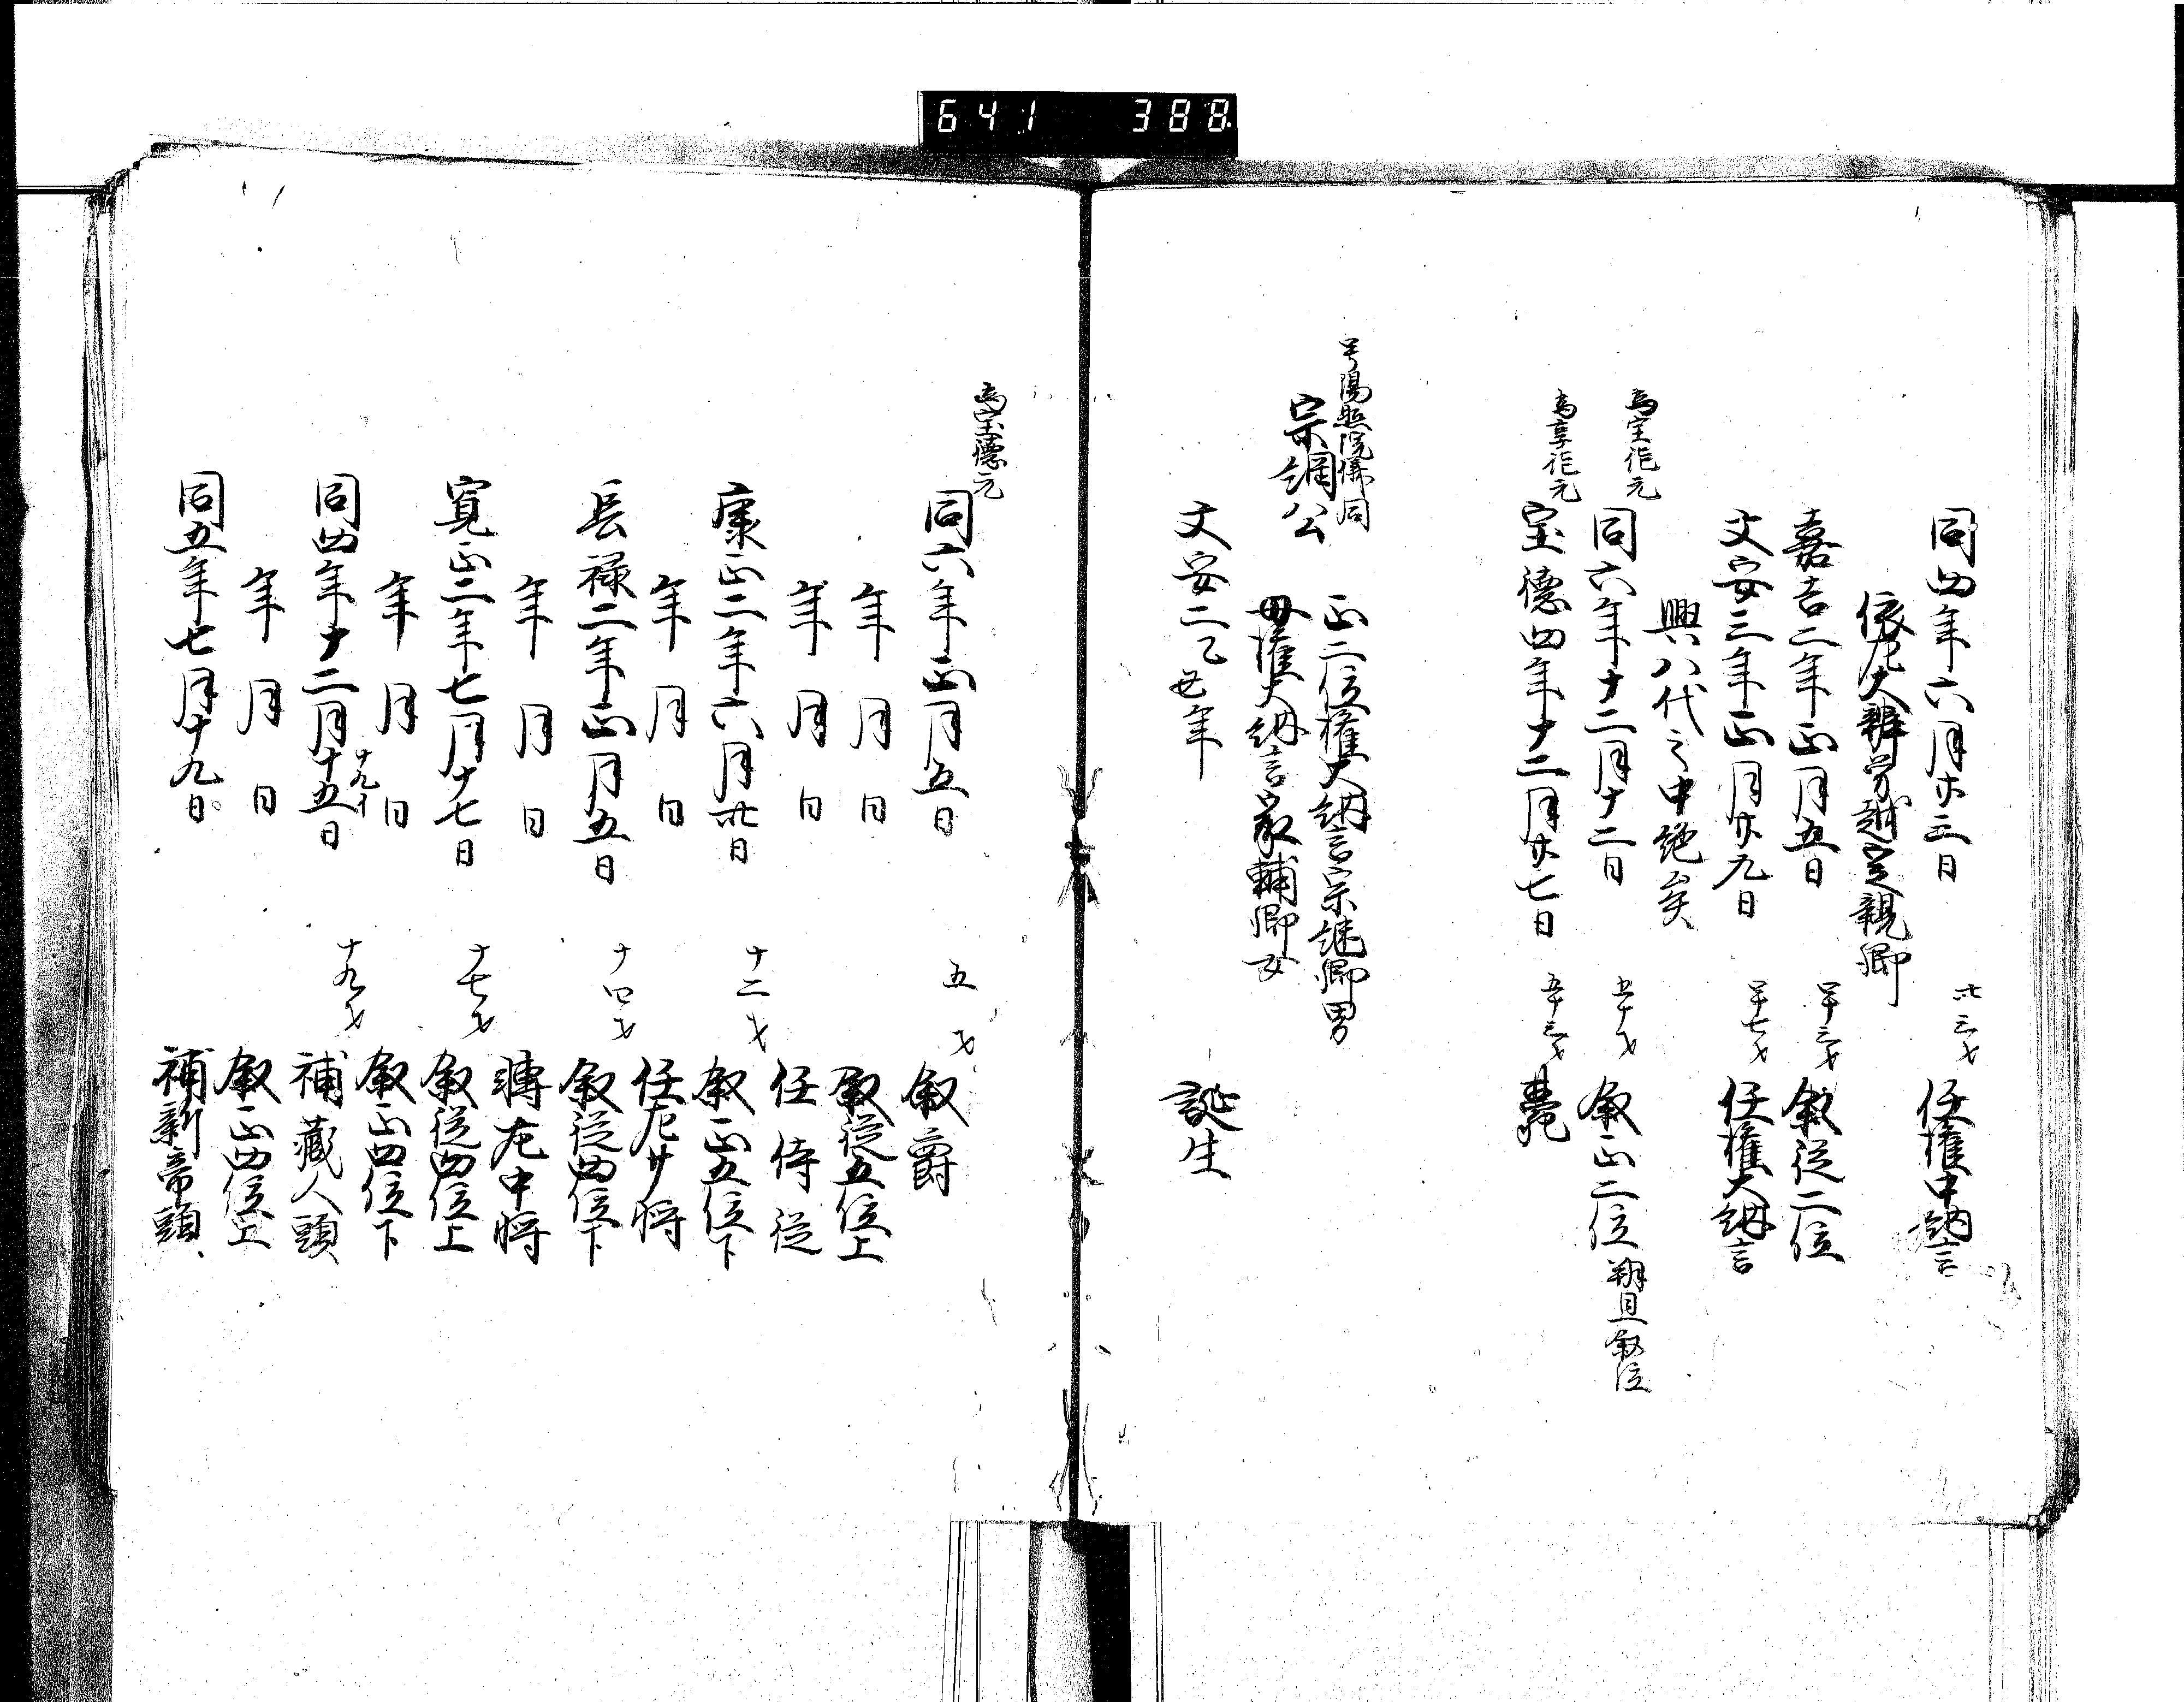 641 388
同四年六月廿三日 卅三才 任権中納言
依左大辨労越定親卿
嘉吉二年正月五日 四十三才 叙従二位
文安三年正月廿九日 四十七才 任権大納言
興八代之中絶矣
為宝徳元
同六年十二月十二日 五十才 叙正二位 朔旦叙位
為享徳元
宝徳四年十二月廿七日 五十三才 薨
号陽照院
宗綱公 正二位権大納言宗継卿男
母権大納言家輔卿女
文安二乙丑年 誕生
為宝徳元
同六年正月五日 五才 叙爵
年月日 叙従五位上
年月日 任侍従
康正二年六月卅日 十二才 叙正五位下
年月日 任左少将
長禄二年正月五日 十四才 叙従四位下
年月日 転左中将
寛正二年七月十七日 十七才 叙従四位上
年月日 叙正四位下
十九才
同四年十二月十五日 十九才 補蔵人頭
年月日 叙正四位上
同五年七月十九日 補新帝頭